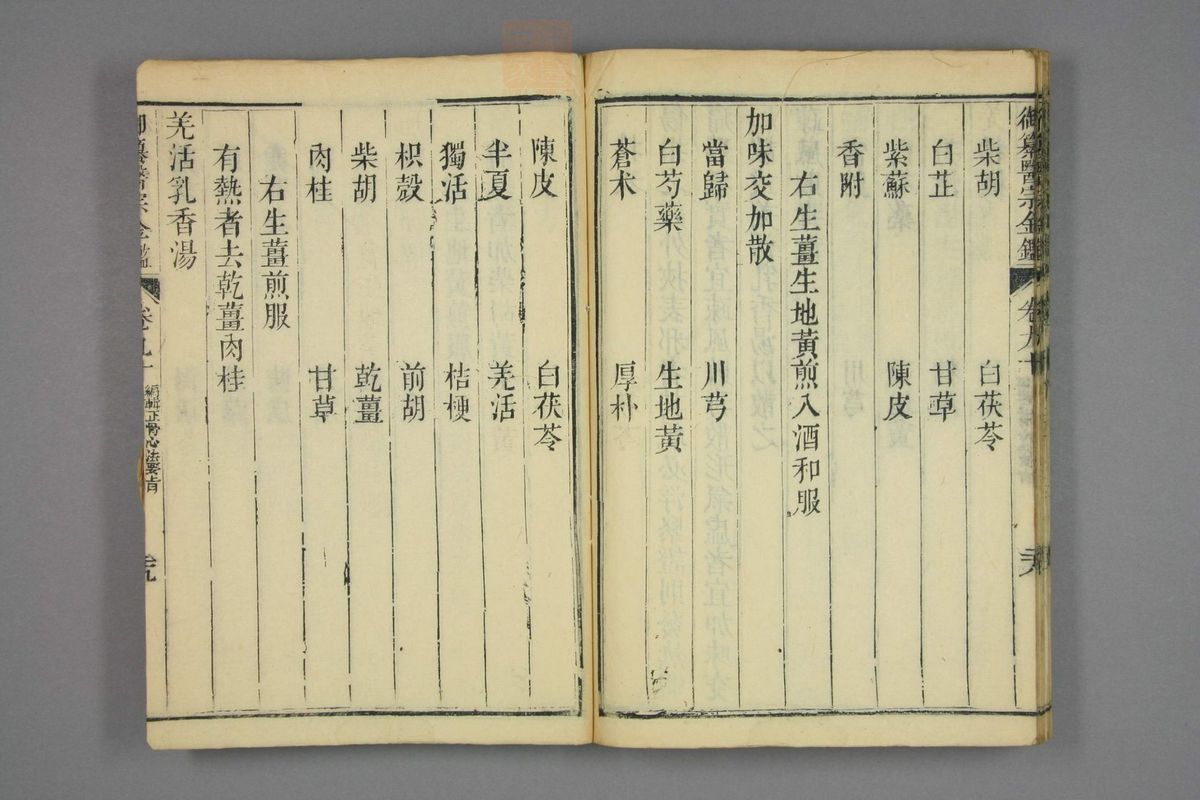 御纂醫宗金鑑 卷九十
柴胡 白茯苓
白芷 甘草
紫蘇 陳皮
香附
右生薑生地黃煎入酒和服
加味交加散
當歸 川芎
白芍藥 生地黃
蒼朮 厚朴
陳皮 白茯苓
半夏 羌活
獨活 桔梗
枳殼 前胡
柴胡 乾薑
肉桂 甘草
右生薑煎服
有熱者去乾薑肉桂
羌活乳香湯
御纂醫宗金鑑 卷九十 編輯正骨心法要旨